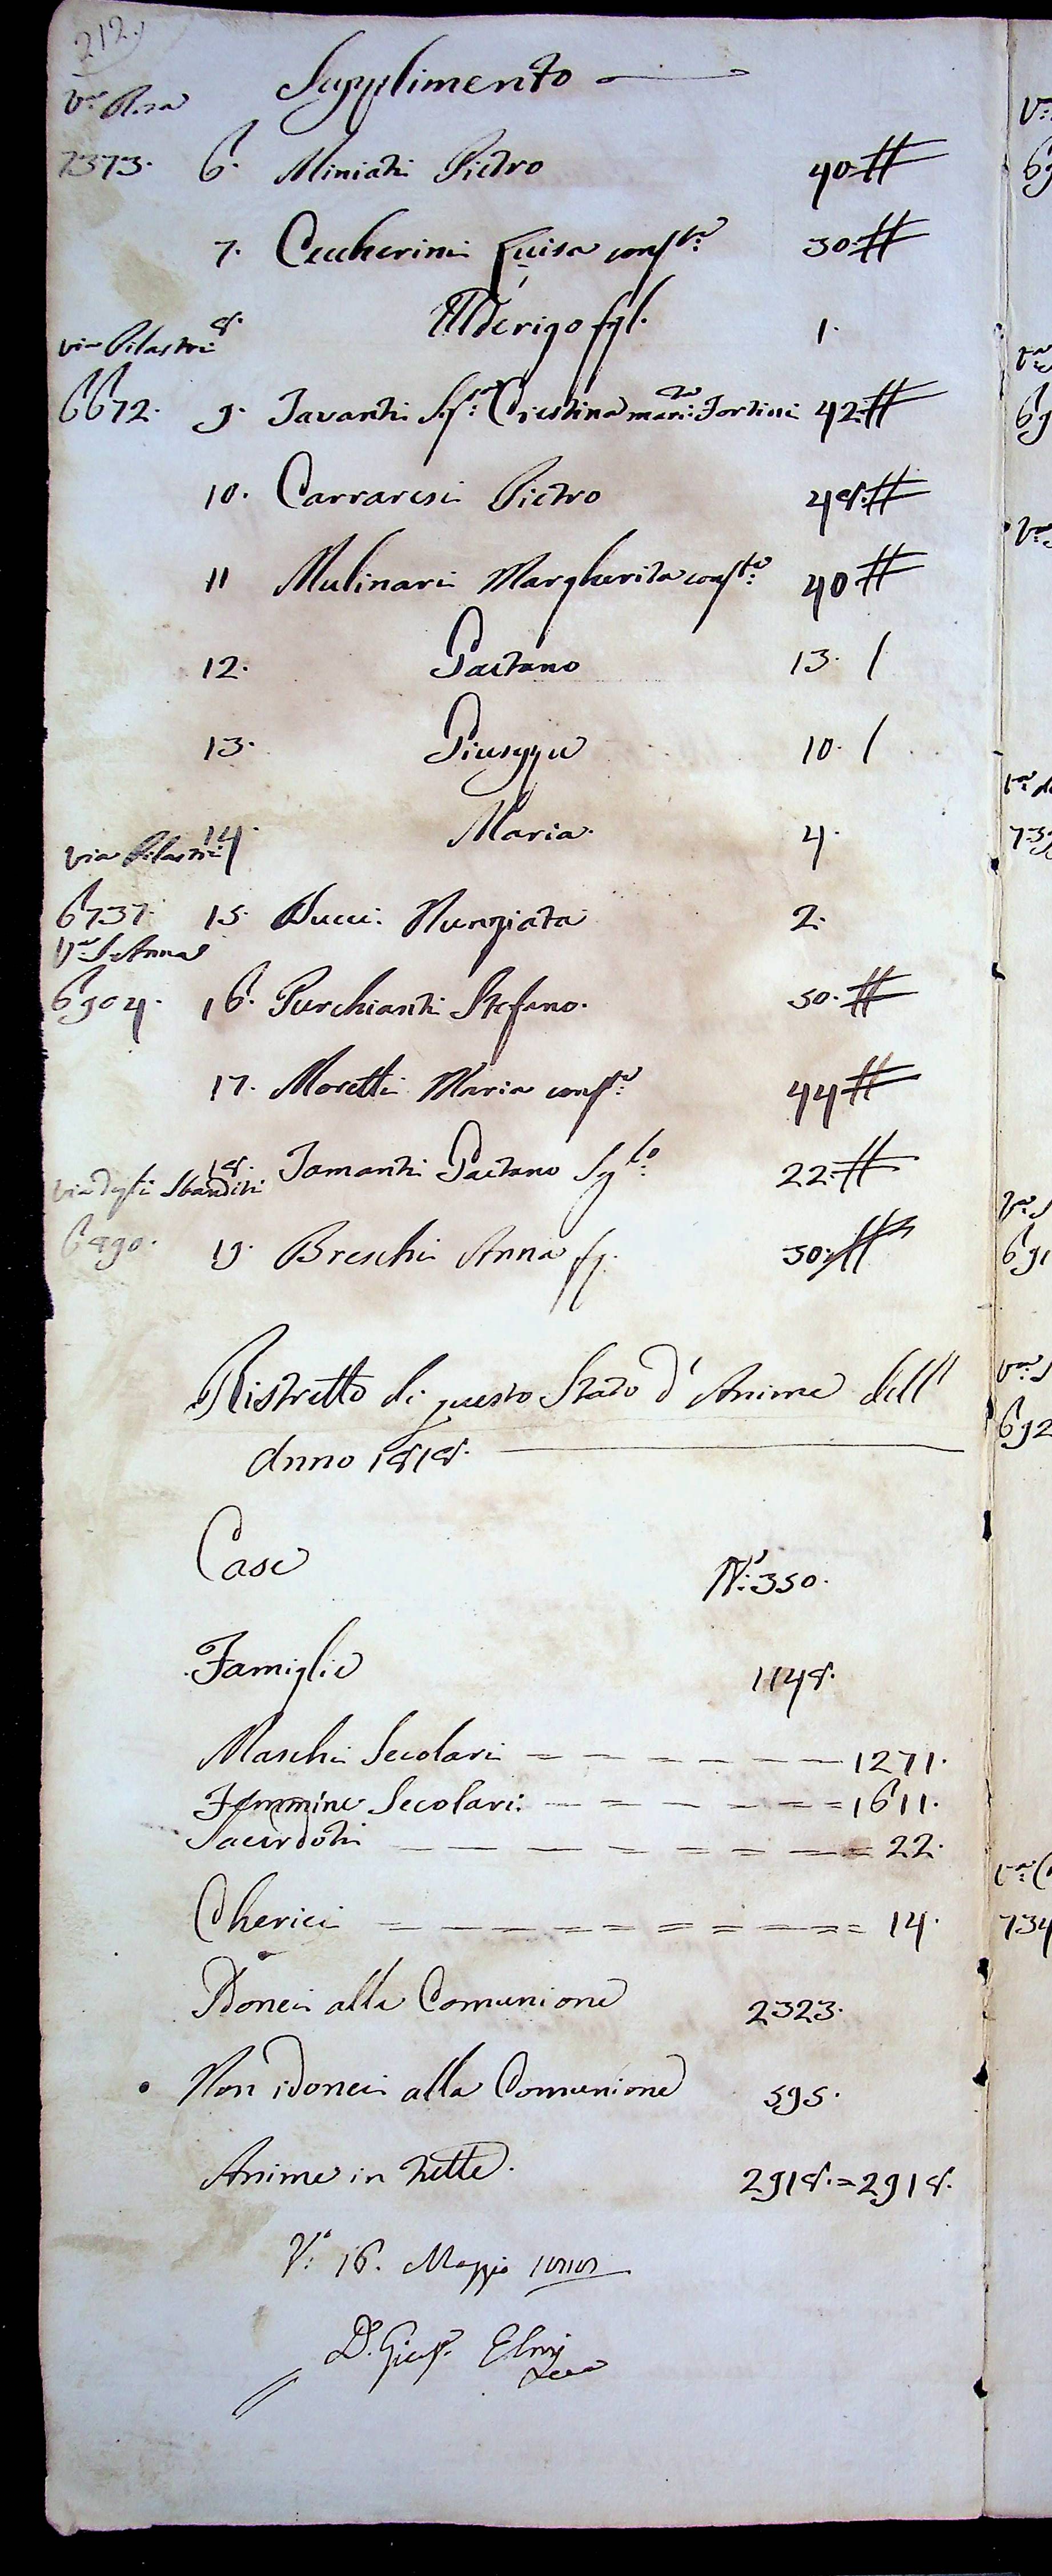 212.
Supplimento
Va Rosa
7373. 6. Miniati Pietro 40
7. Ceccherini Luisa conste 30
8. Alderigo fgl. 1.
via Pilastri
6672. 9. Tavanti Cristina marta Fortini 42
10. Carraresi Pietro 48.
11 Mulinari Margherita conste 40
12. Gaetano 13. /
13. Giuseppe 10. /
14. Maria. 4.
via Pilastri
6737. 15. Bucci Nunziata 2.
Va S. Anna
6904. 16. Purchianti Stefano. 50.
17. Moretti Maria conste 44
18. Tamanti Gaetano 22.
via degli Sbanditi
6890. 19. Breschi Anna 30.
Ristretto di questo Stato d'Anime dell'
Anno 1818.
Case No: 350.
Famiglie 1148.
Maschi Secolari 1271.
Femmine Secolari: 1611.
Sacerdoti 22.
Cherici 14.
Idonei alla Comunione 2323.
Non idonei alla Comunione 595.
Anime in tutte. 2918. = 2918.
Vo: 16. Maggio 1818
D. Gius. Elmi